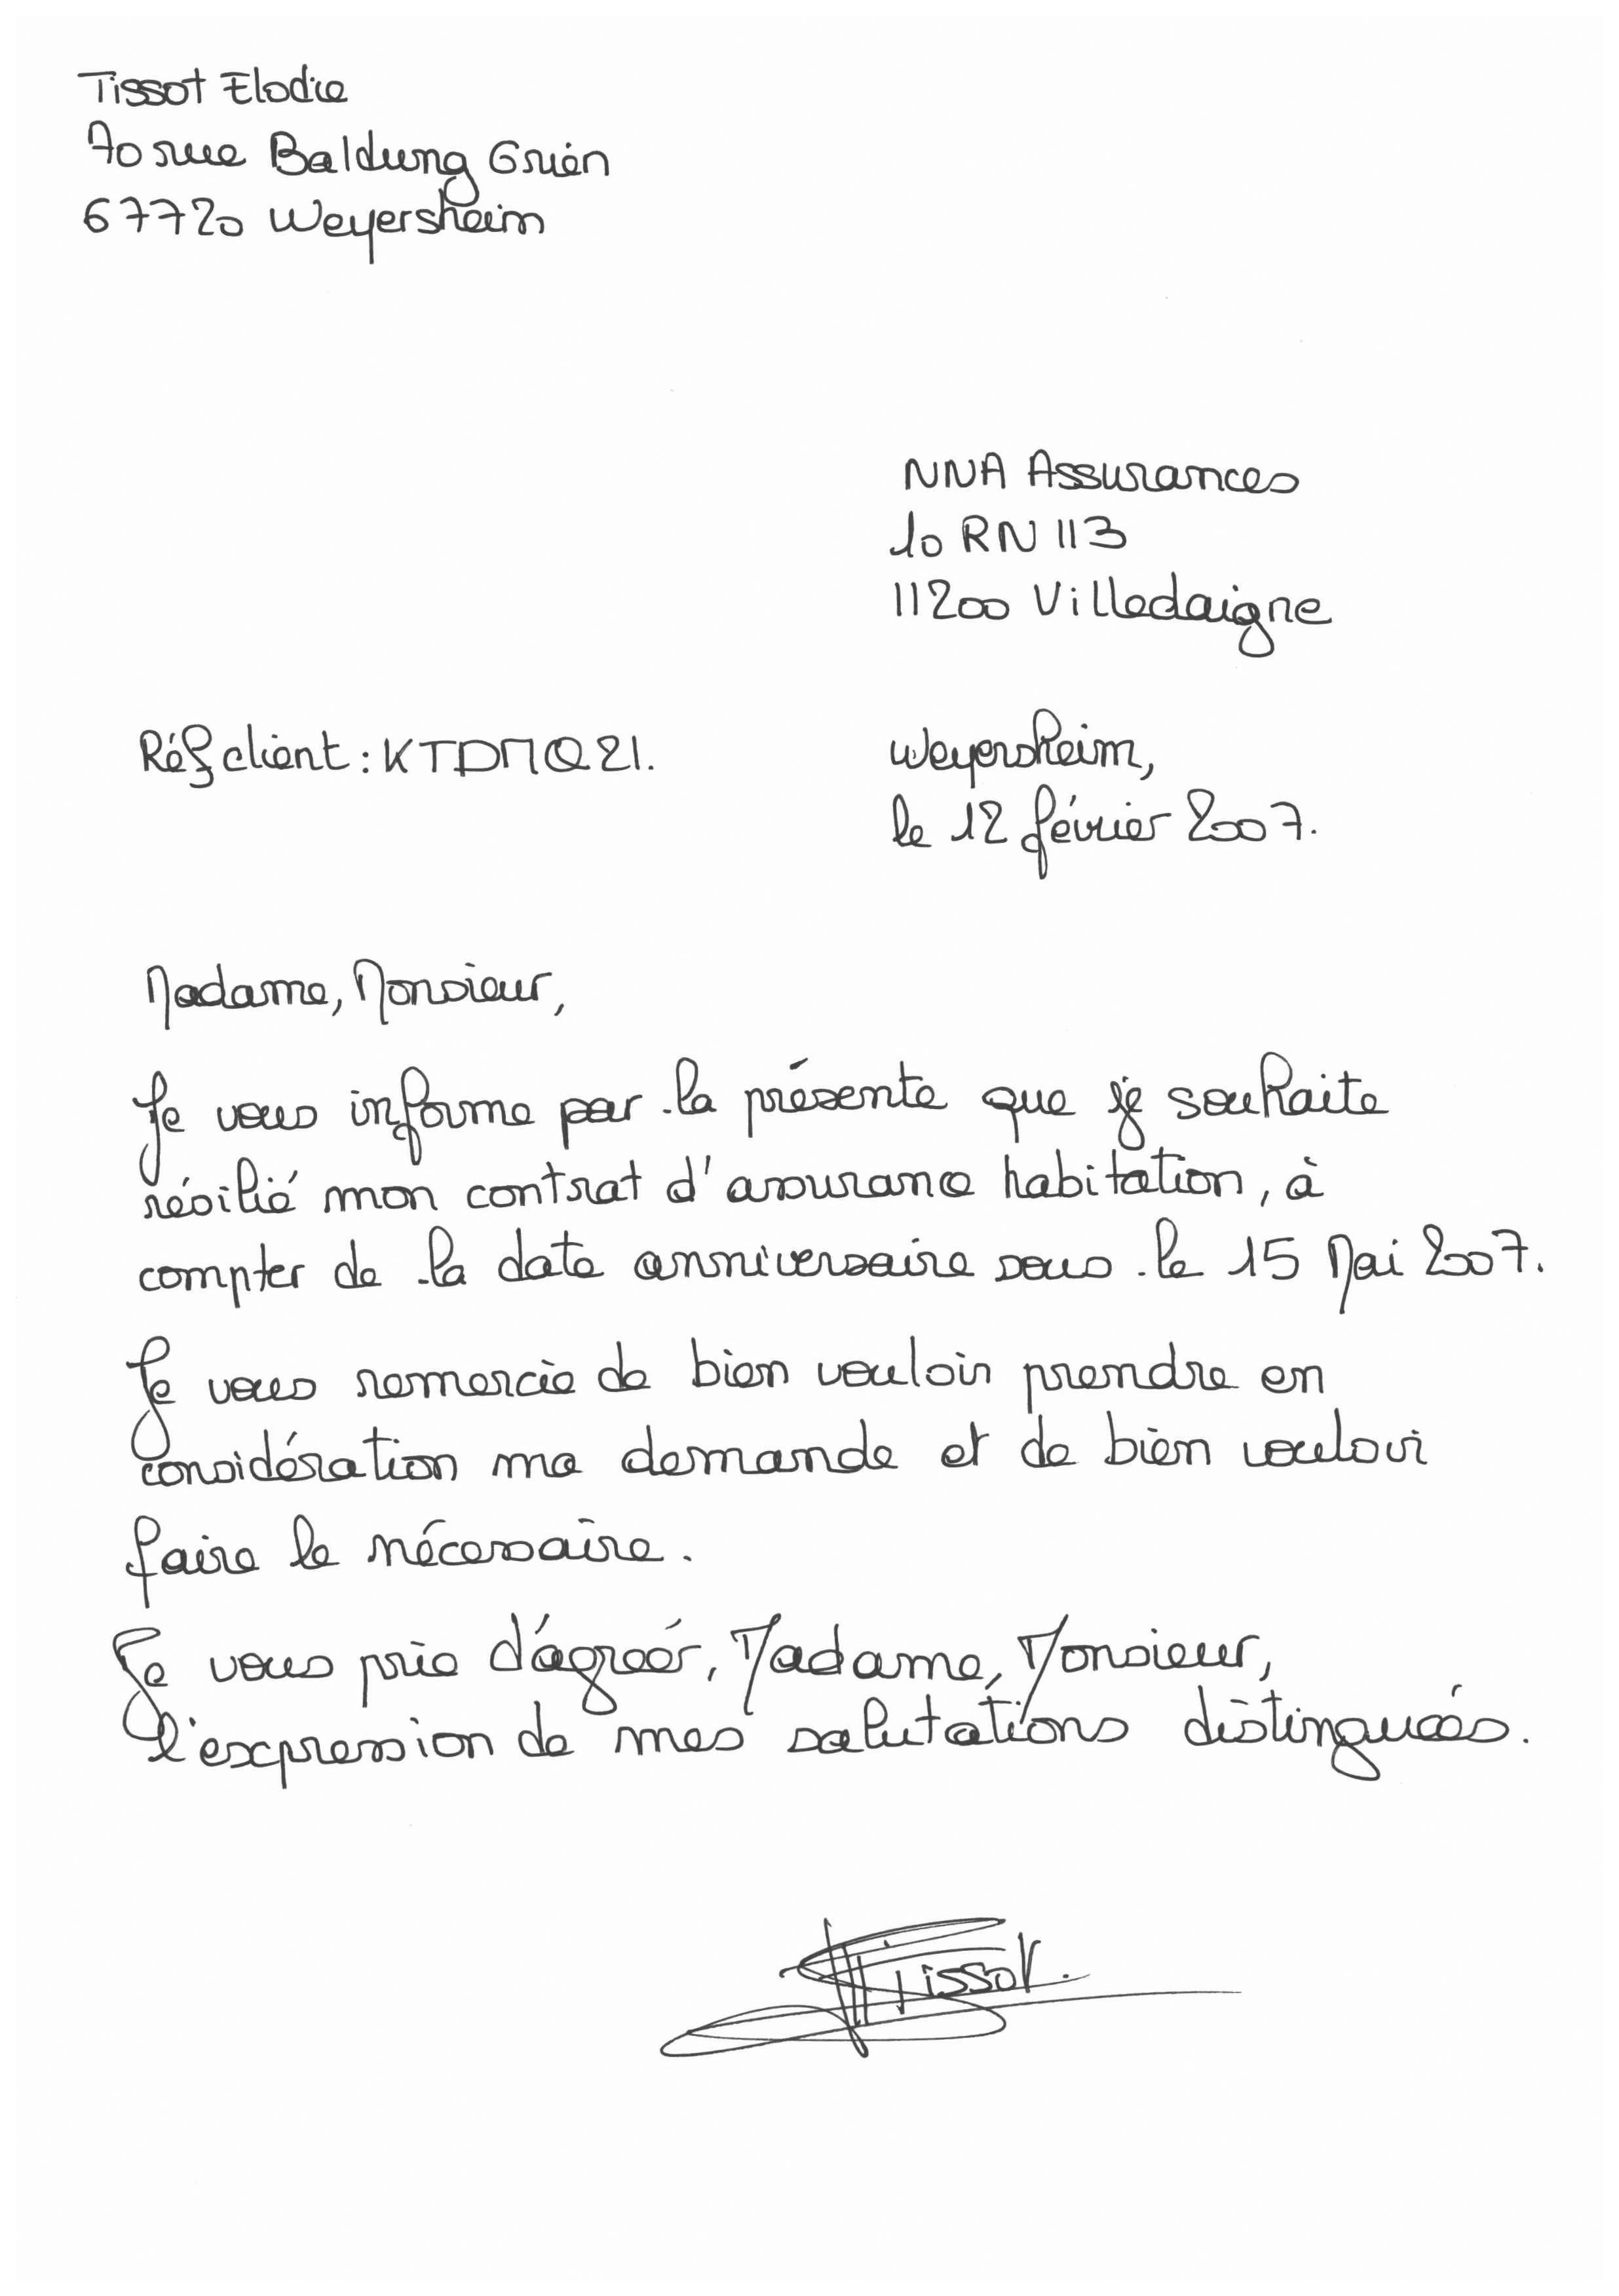 Tissot Elodie
70 rue Baldung Grién
67720 Weyersheim
NNA Assurances
10 RN 113
11200 Villedaigne
Réf client : KTDMQ21.
Weyersheim,
le 12 février 2007.
Madame, Monsieur,
Je vous informe par la présente que je souhaite
résilié mon contrat d'assurance habitation, à
compter de la date anniversaire sous le 15 Mai 2007.
Je vous remercie de bien vouloir prendre en
considération ma demande et de bien vouloir
faire le nécessaire.
Je vous prie d'agréer, Madame, Monsieur,
l'expression de mes salutations distinguées.
Tissot.